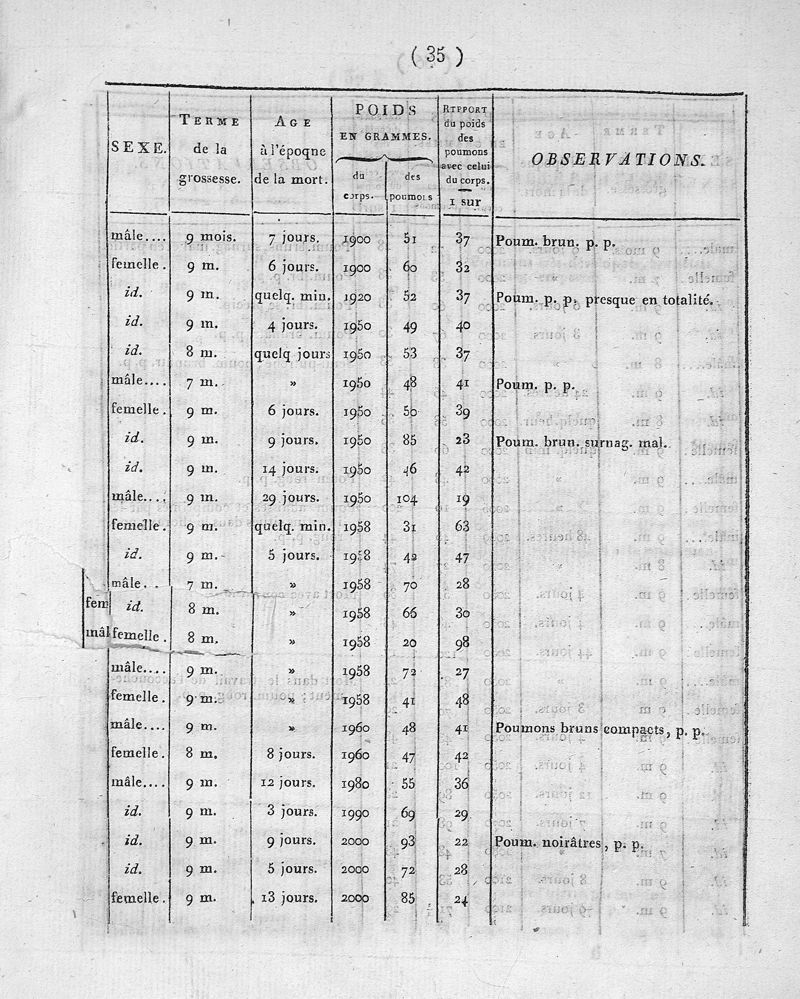 ( 35 )
SEXE. TERME de la grossesse. AGE à l'époque de la mort. POIDS EN GRAMMES. du corps. des poumons RAPPORT du poids des poumons avec celui du corps. 1 sur OBSERVATIONS.
mâle.... 9 mois. 7 jours. 1900 51 37 Poum. brun. p. p.
femelle. 9 m. 6 jours. 1900 60 32
id. 9 m. quelq. min. 1920 52 37 Poum. p. p. presque en totalité.
id. 9 m. 4 jours. 1950 49 40
id. 8 m. quelq jours 1950 53 37
mâle.... 7 m. » 1950 48 41 Poum. p. p.
femelle. 9 m. 6 jours. 1950 50 39
id. 9 m. 9 jours. 1950 85 23 Poum. brun. surnag. mal.
id. 9 m. 14 jours. 1950 46 42
mâle.... 9 m. 29 jours. 1950 104 19
femelle. 9 m. quelq. min. 1958 31 63
id. 9 m. 5 jours. 1958 42 47
mâle. . 7 m. » 1958 70 28
fem id. 8 m. » 1958 66 30
mâl femelle. 8 m. » 1958 20 98
mâle.... 9 m. » 1958 72 27
femelle. 9 m. » 1958 41 48
mâle.... 9 m. » 1960 48 41 Poumons bruns compacts, p. p.
femelle. 8 m. 8 jours. 1960 47 42
mâle.... 9 m. 12 jours. 1980 55 36
id. 9 m. 3 jours. 1990 69 29
id. 9 m. 9 jours. 2000 93 22 Poum. noirâtres, p. p.
id. 9 m. 5 jours. 2000 72 28
femelle. 9 m. 13 jours. 2000 85 24